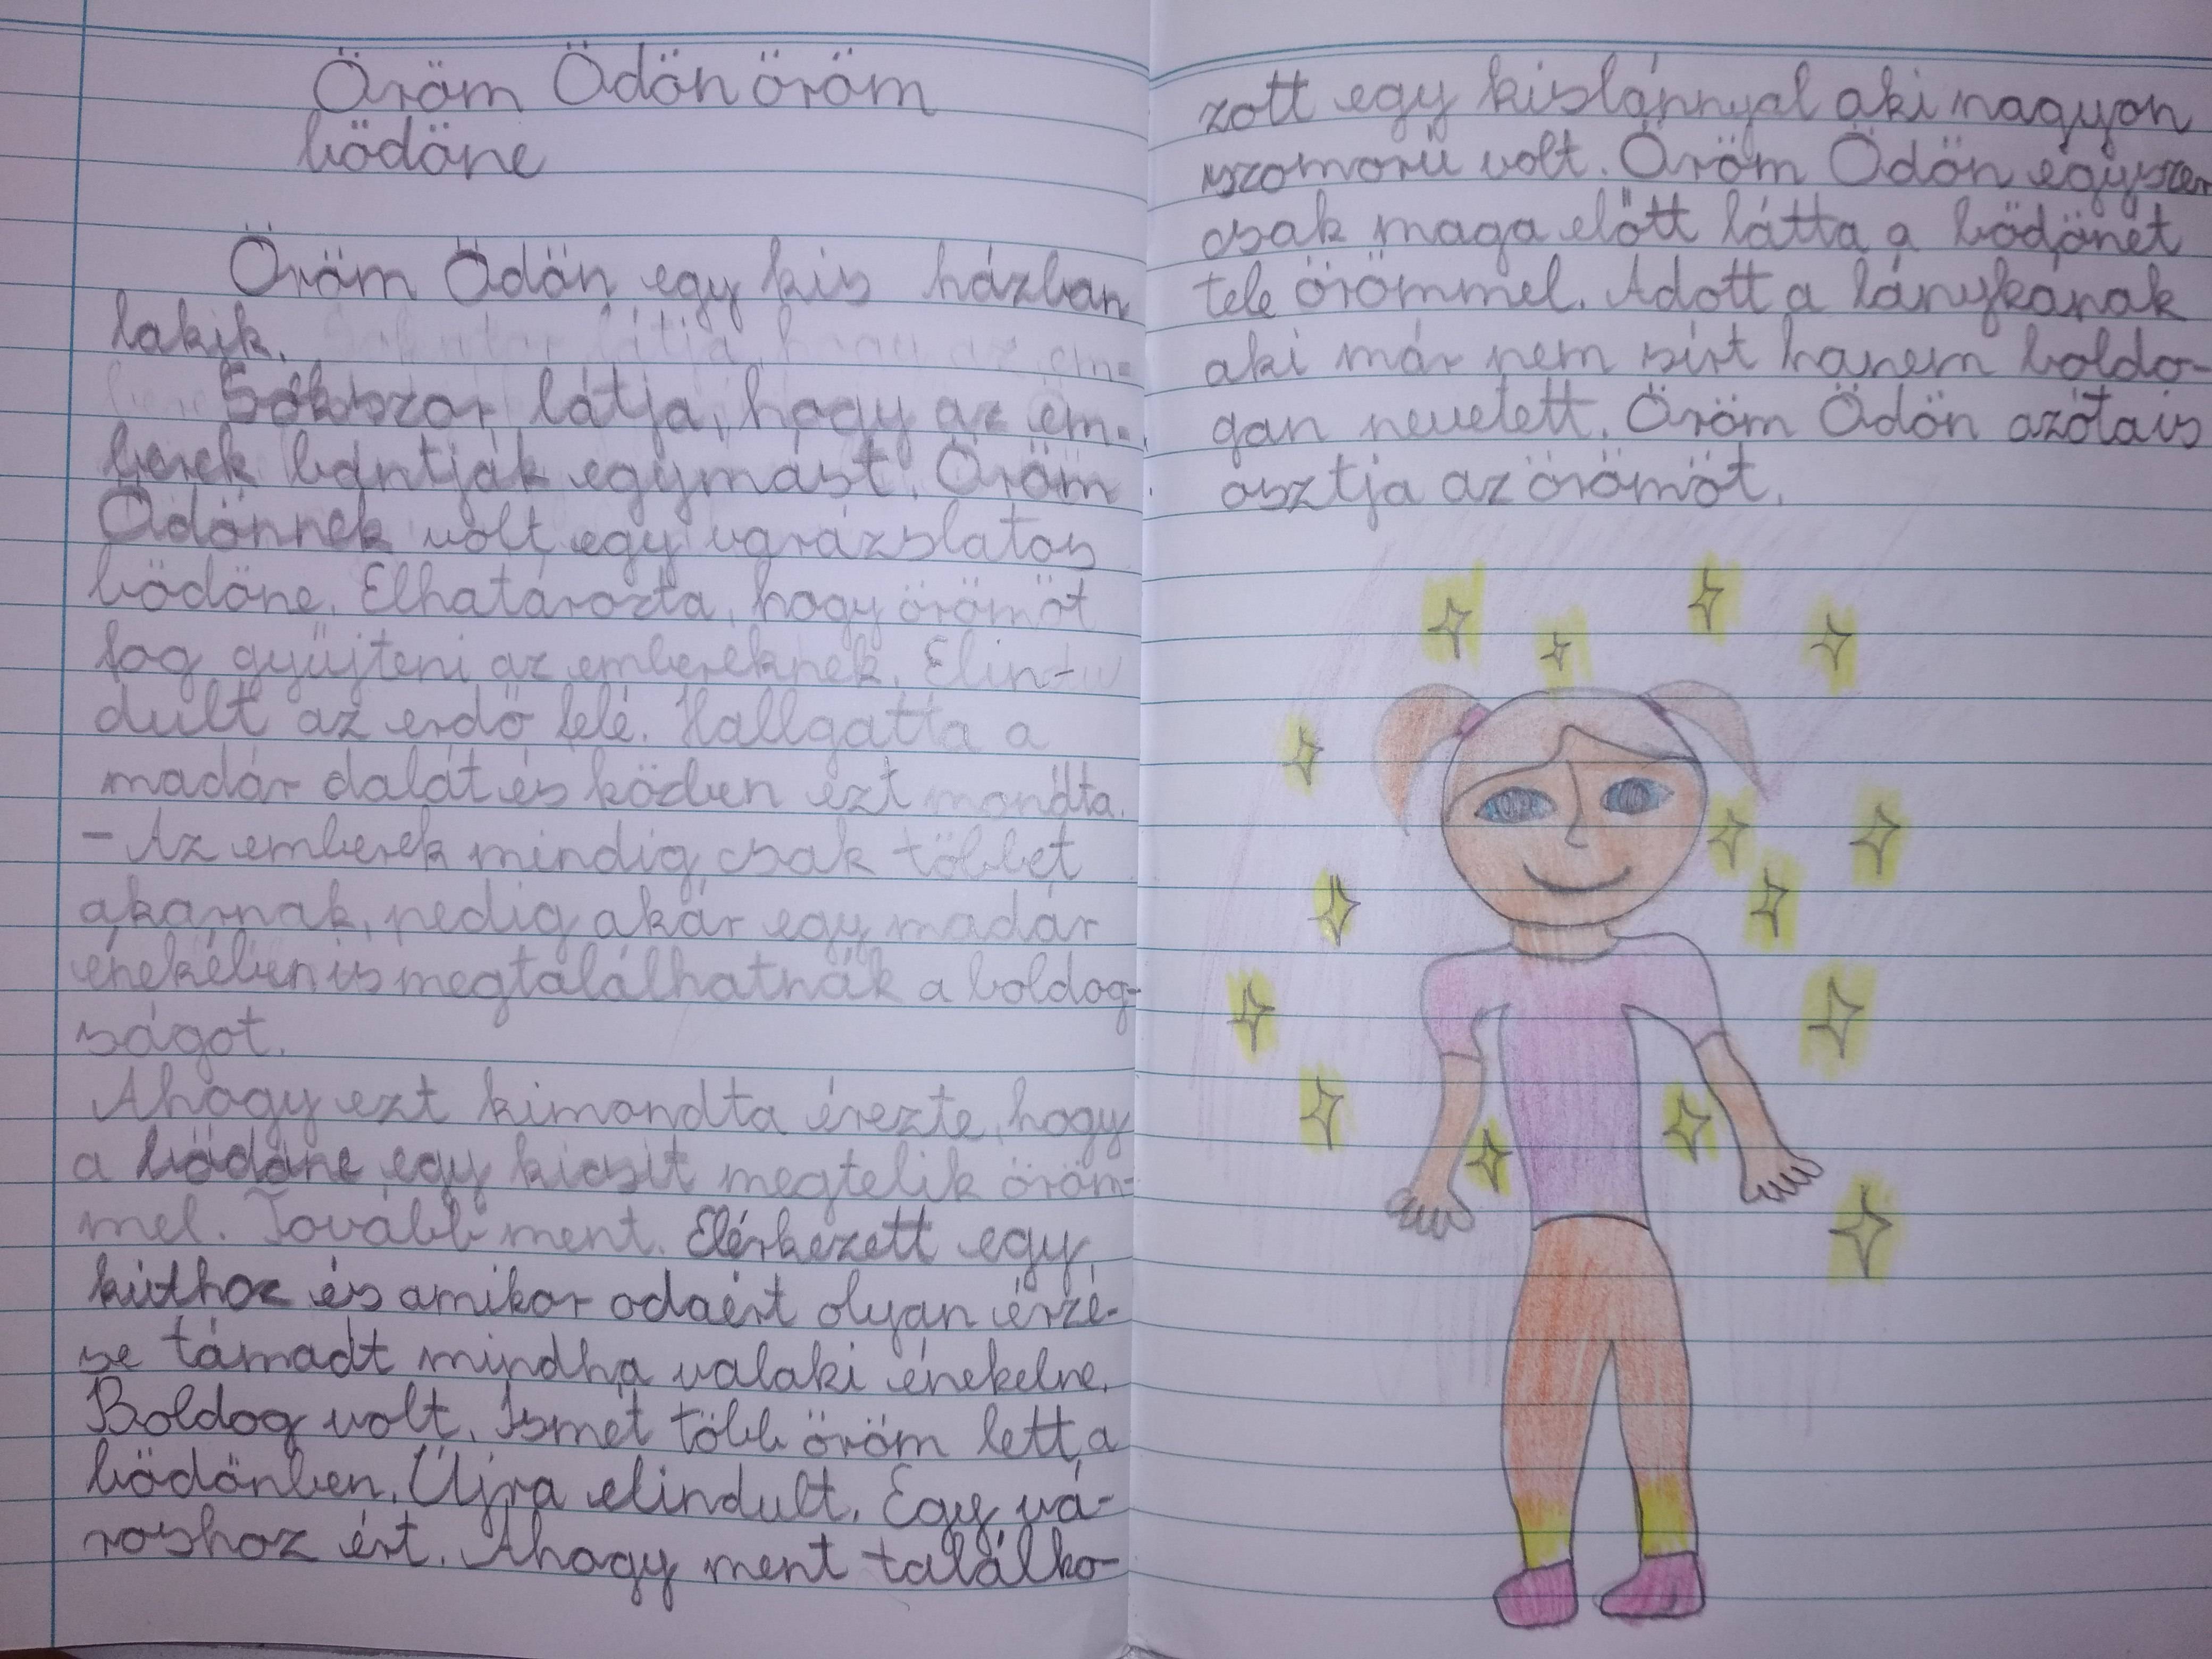 Öröm Ödön öröm
bödöne
Öröm Ödön egy kis házban
lakik.
Sokszor látja, hogy az em-
berek bántják egymást. Öröm
Ödönnek volt egy varázslatos
bödöne. Elhatározta, hogy örömöt
fog gyűjteni az embereknek. Elin-
dult az erdő felé. Hallgatta a
madár dalát és közben ezt mondta.
- Az emberek mindig csak többet
akarnak, pedig akár egy madár
énekében is megtalálhatnák a boldog-
ságot.
Ahogy ezt kimondta érezte, hogy
a bödöne egy kicsit megtelik öröm-
mel. Tovább ment. Elérkezett egy
kúthoz és amikor odaért olyan érzé-
se támadt mindha valaki énekelne.
Boldog volt. Ismét több öröm lett a
bödönben. Újra elindult. Egy vá-
roshoz ért. Ahogy ment találko-
zott egy kislánnyal aki nagyon
szomorú volt. Öröm Ödön egyszer
csak maga előtt látta a bödönét
tele örömmel. Adott a lánykának
aki már nem sírt hanem boldo-
gan nevetett. Öröm Ödön azóta is
osztja az örömöt.